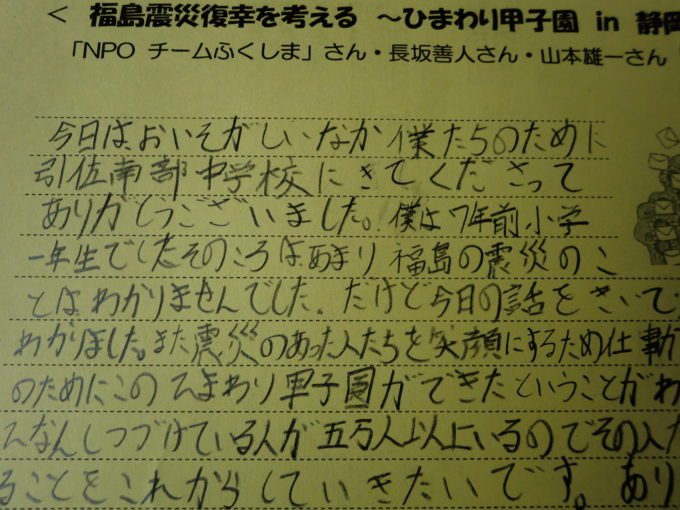 < 福島震災復幸を考える ~ひまわり甲子園 in 静岡
「NPO チームふくしま」さん・長坂善人さん・山本雄一さん
今日はおいそがしいなか僕たちのために
引佐南部中学校にきてくださって
ありがとうございました。僕は7年前小学
一年生でしたそのころはあまり福島の震災のこ
とはわかりませんでした。だけど今日の話をきいて
わかりました。また震災のあった人たちを笑顔にするため仕事が
のためにこのひまわり甲子園ができたということがわ
なんしつづけている人が五万人以上いるのでその人た
ることをこれからしていきたいです。あり